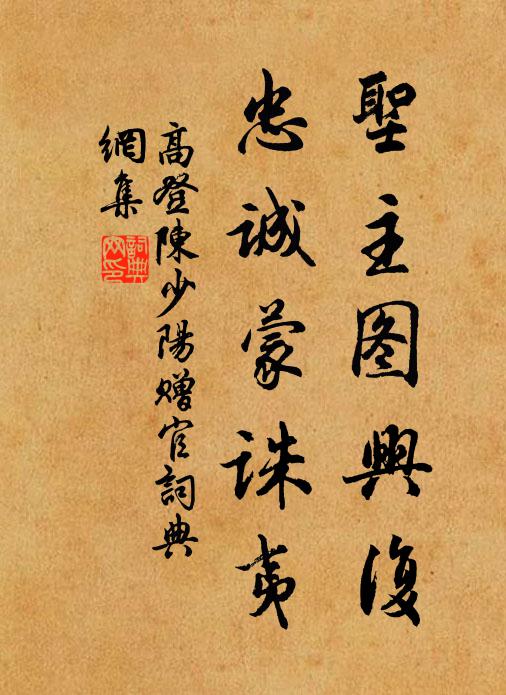 聖主图興復
忠誠蒙誅夷
高登陳少陽贈官詞典
網集
詞典
网印